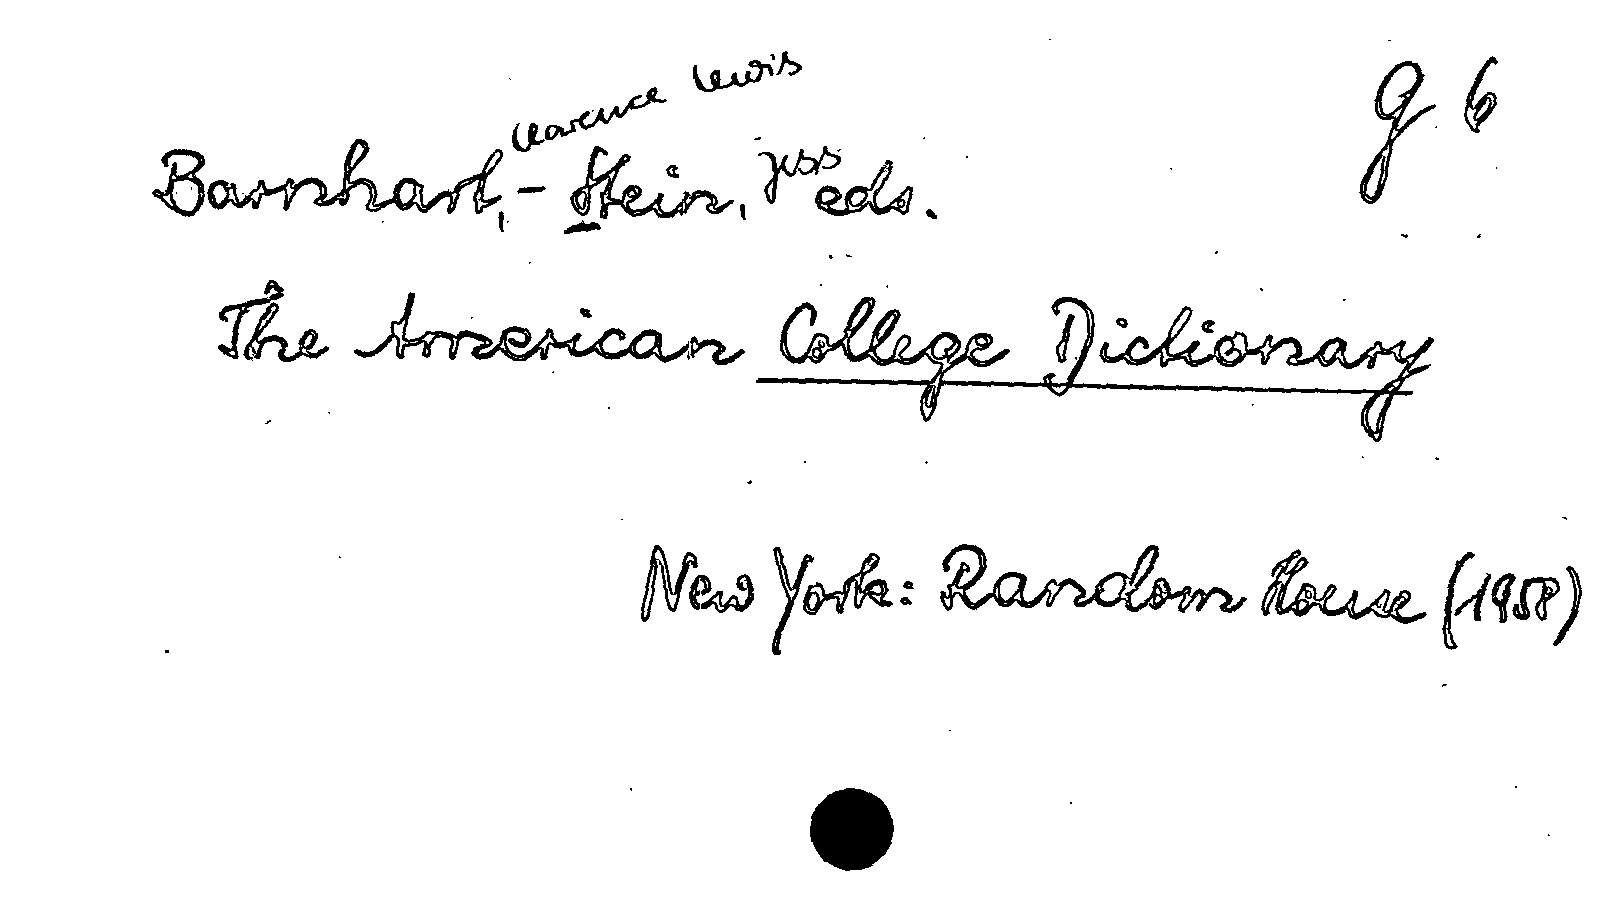 Clarence Lewis
G 6
Barnhart, - Stein, Jess eds.
The American College Dictionary
New York: Random House (1958)